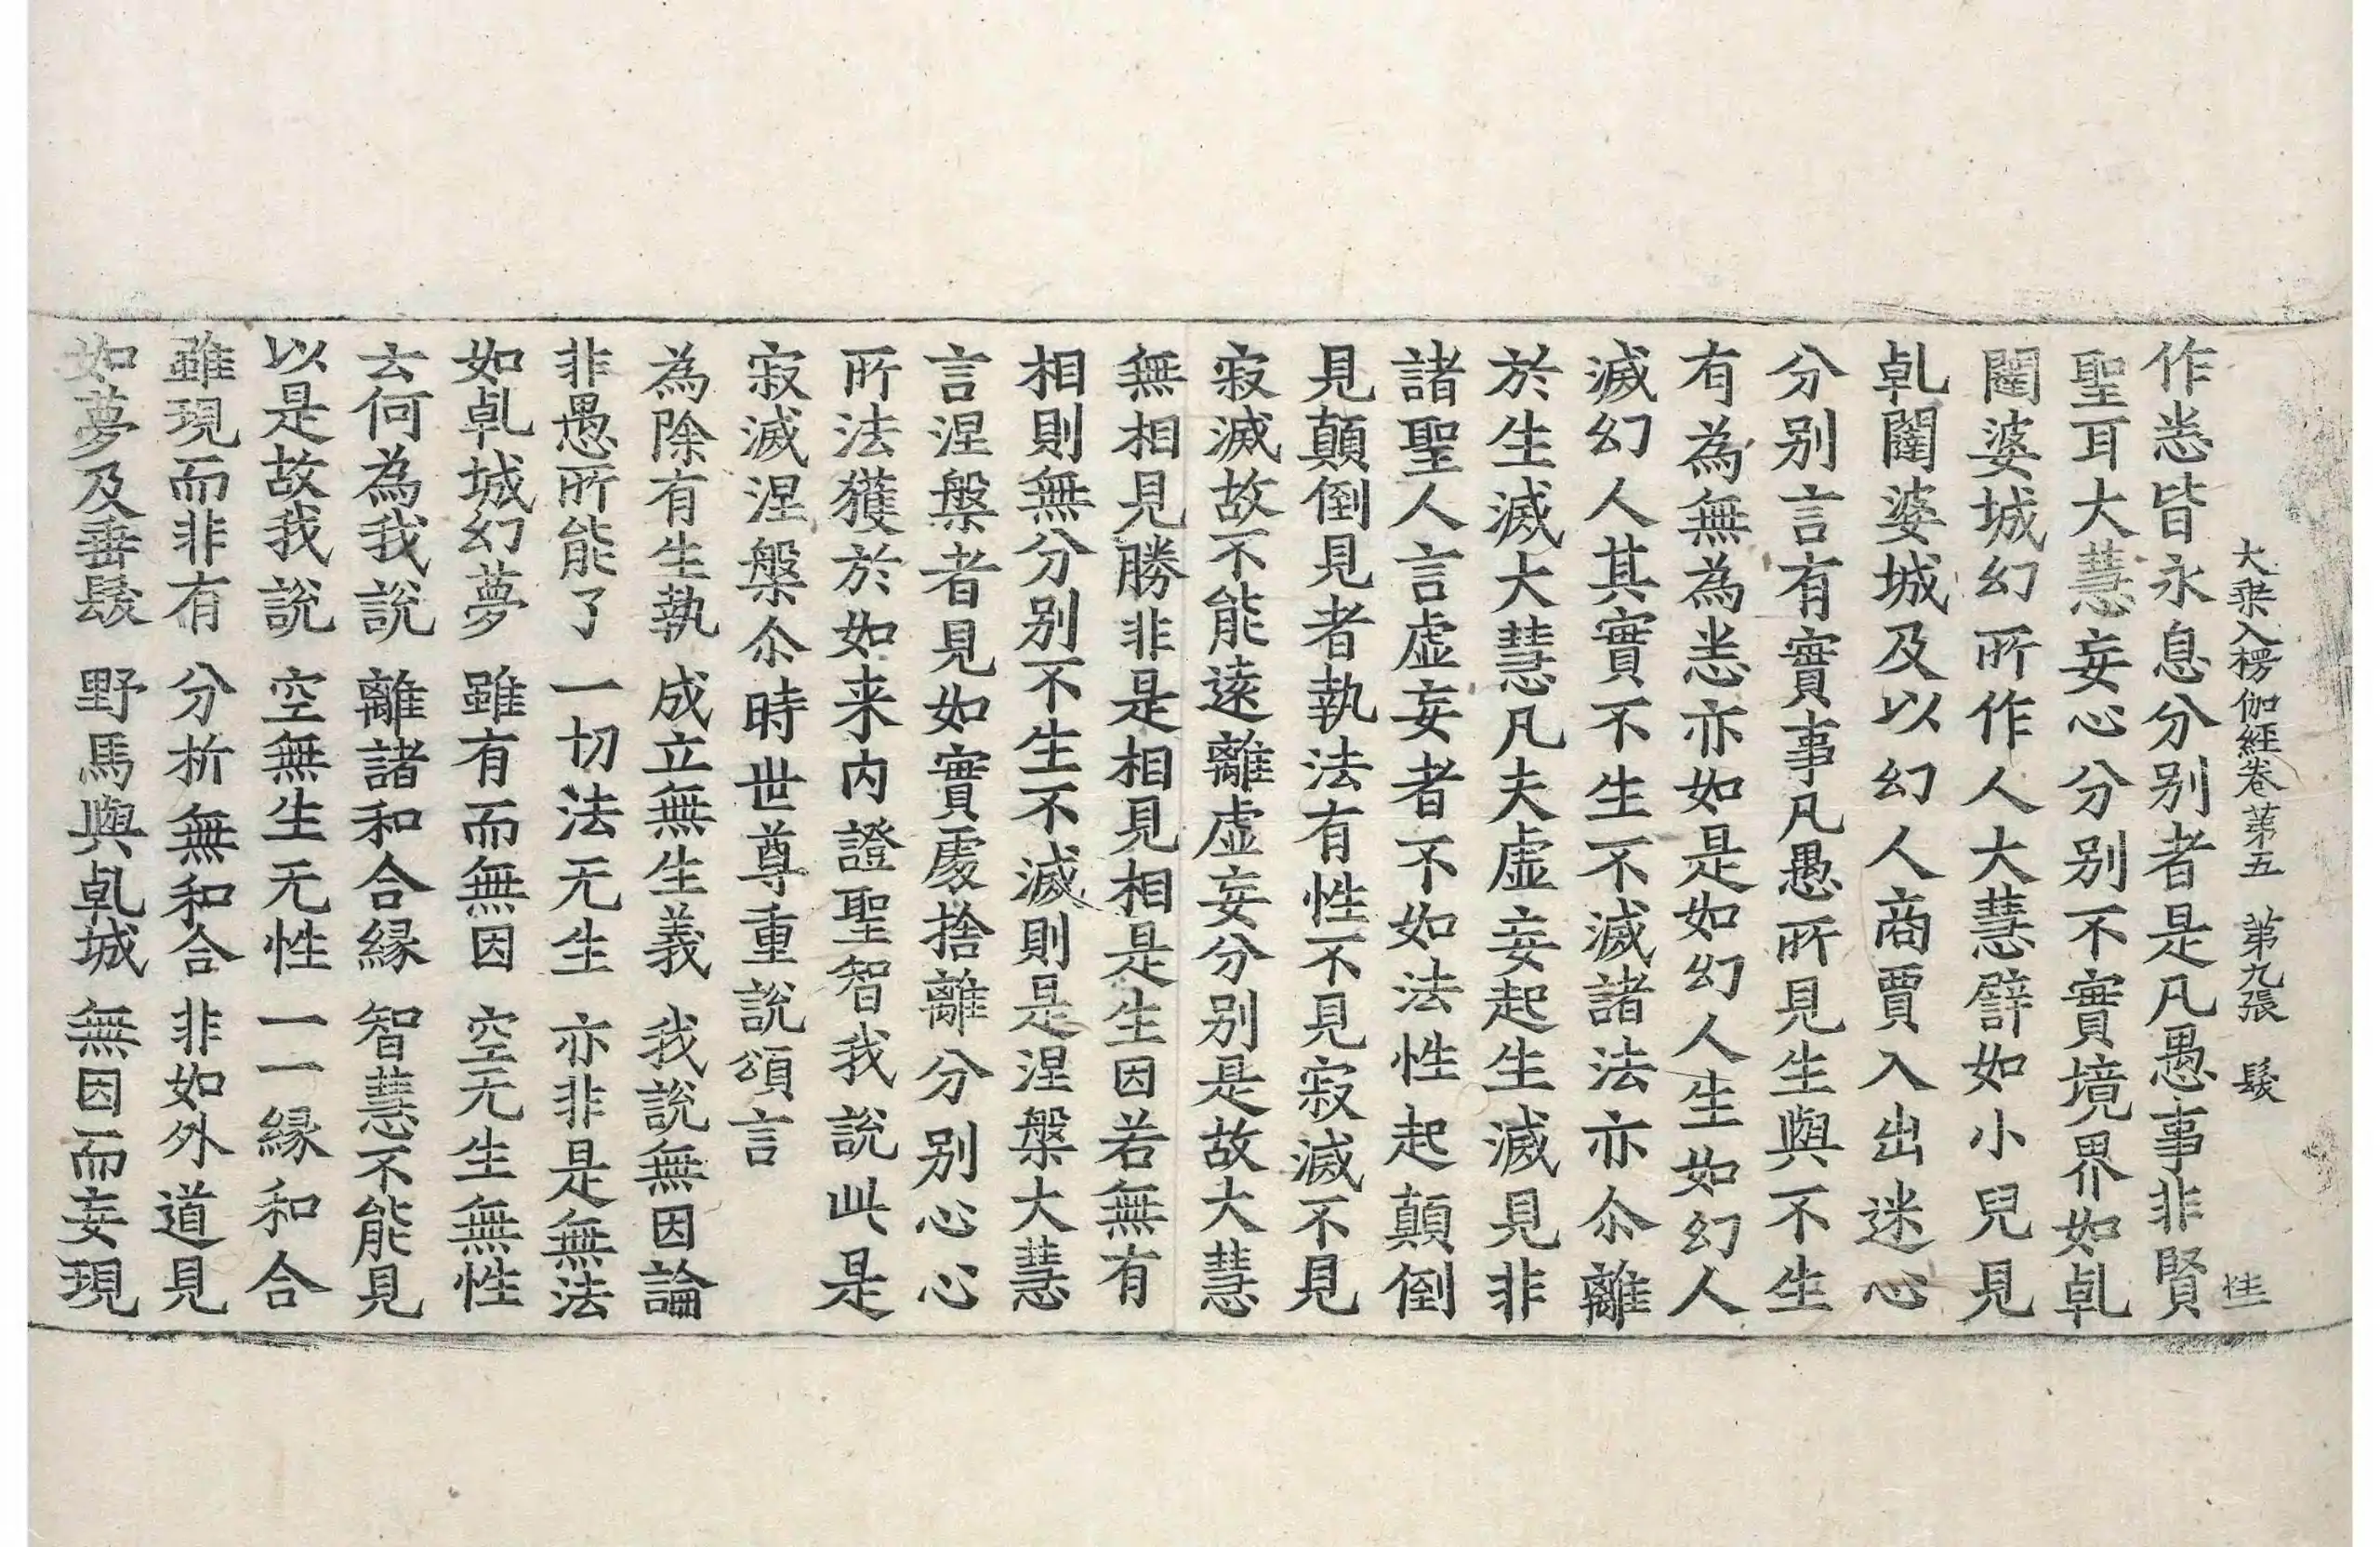 大乗入楞伽経卷苐五 苐九張 髮 
作悉皆永息分别者是凡愚事非賢
聖耳大慧妄心分别不實境界如乹
闥婆城幻所作人大慧譬如小兒見
乹闥婆城及以幻人商賈入出迷心
分别言有實事凡愚所見生與不生
有為無為悉亦如是如幻人生如幻人
滅幻人其實不生不滅諸法亦尒離
於生滅大慧凡夫虛妄起生滅見非
諸聖人言虛妄者不如法性起顛倒
見顛倒見者執法有性不見寂滅不見
寂滅故不能遠離虛妄分别是故大慧
無相見勝非是相見相是生因若無有
相則無分别不生不滅則是涅槃大慧
言涅槃者見如實處捨離分别心心
所法獲於如来内證聖智我説此是
寂滅涅槃尒時世尊重説頌言
為除有生執 成立無生義 我説無因論
非愚所能了 一切法无生 亦非是無法
如乹城幻夢 雖有而無因 空无生無性
云何為我説 離諸和合緣 智慧不能見
以是故我説 空無生无性 一一緣和合
雖現而非有 分析無和合 非如外道見
如夢及垂髮 野馬與乹城 無因而妄現